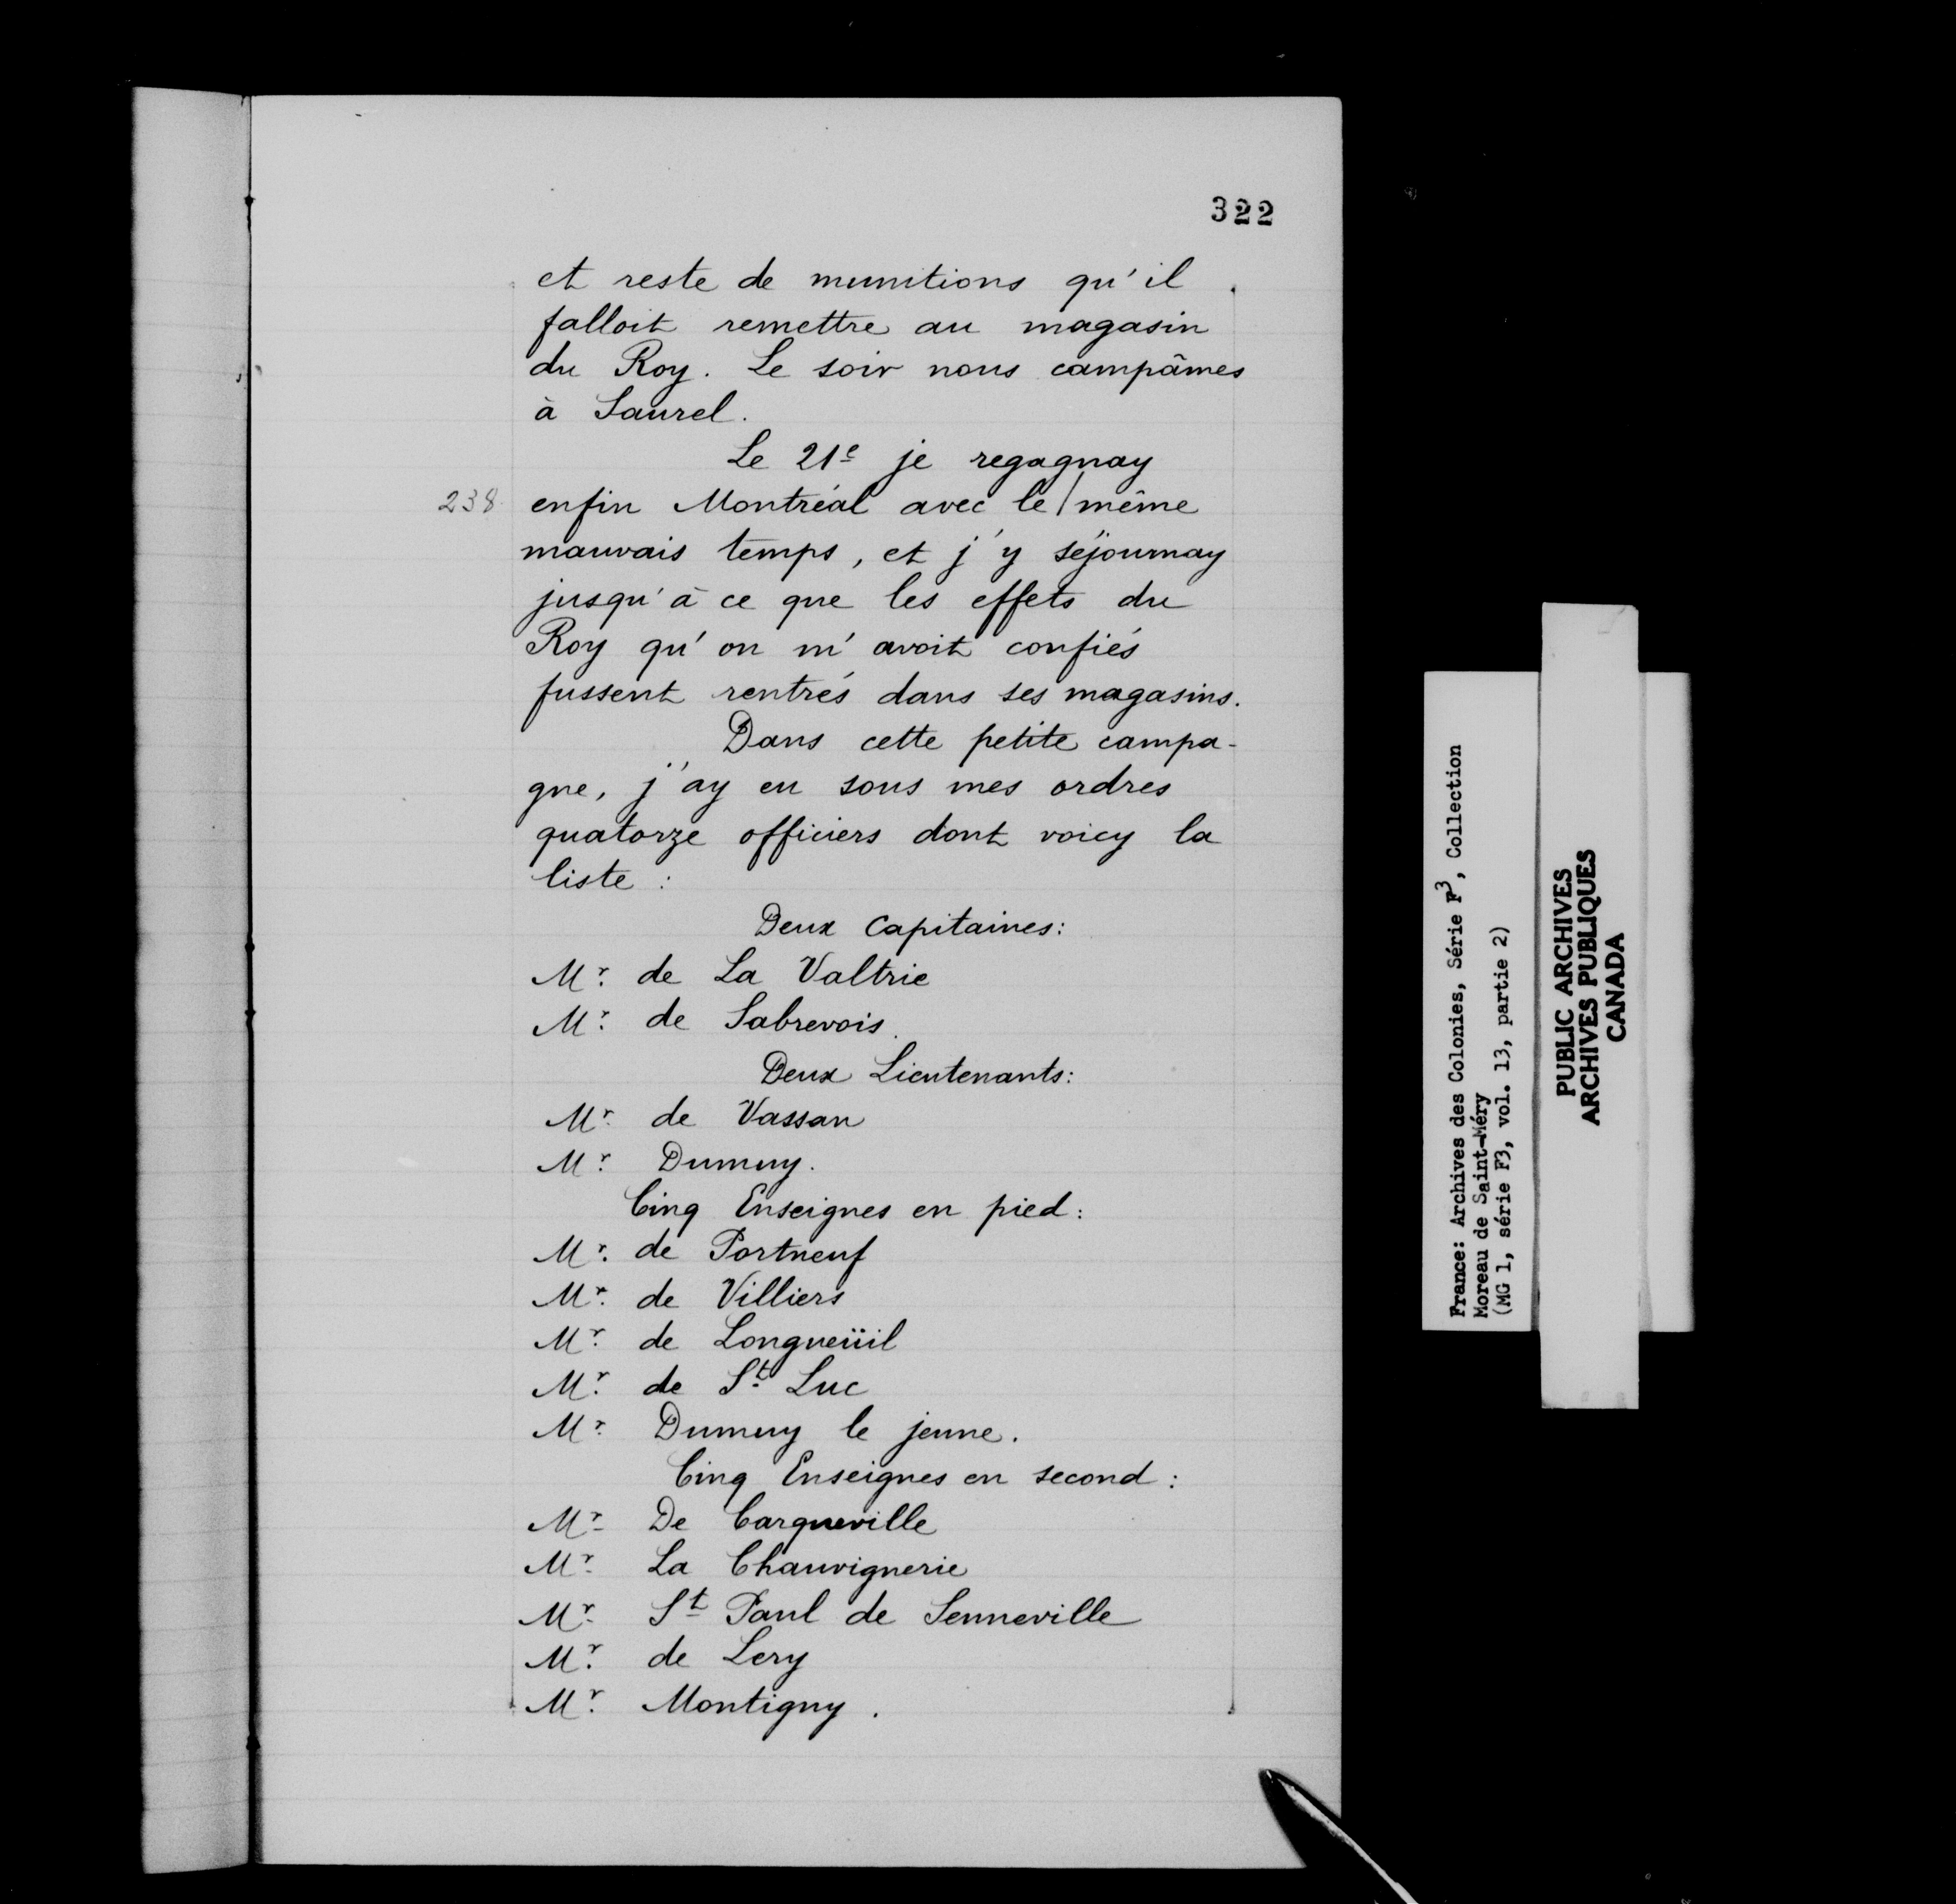 322
et reste de munitions qu'il
falloit remettre au magasin
du Roy. Le soir nous campâmes
à Saurel.
Le 21e je regagnay
238 enfin Montréal avec le / même
mauvais temps, et j'y séjournay
jusqu'à ce que les effets du
Roy qu'on m'avoit confiés
fussent rentrés dans ses magasins.
Dans cette petite campa-
gne, j'ay eu sous mes ordres
quatorze officiers dont voicy la
liste :
Deux Capitaines:
Mr. de La Valtrie
Mr. de Sabrevois.
Deux Lieutenants:
Mr. de Vassan
Mr. Dumuy.
Cinq Enseignes en pied:
Mr. de Portneuf
Mr. de Villiers
Mr. de Longueüil
Mr. de St. Luc
Mr. Dumuy le jeune.
Cinq Enseignes en second :
Mr. De Carqueville
Mr. La Chauvignerie
Mr. St Paul de Senneville
Mr. de Lery
Mr. Montigny.
France: Archives des Colonies, Série F3, Collection
Moreau de Saint-Méry
(MG 1, série F3, vol. 13, partie 2)
PUBLIC ARCHIVES
ARCHIVES PUBLIQUES
CANADA